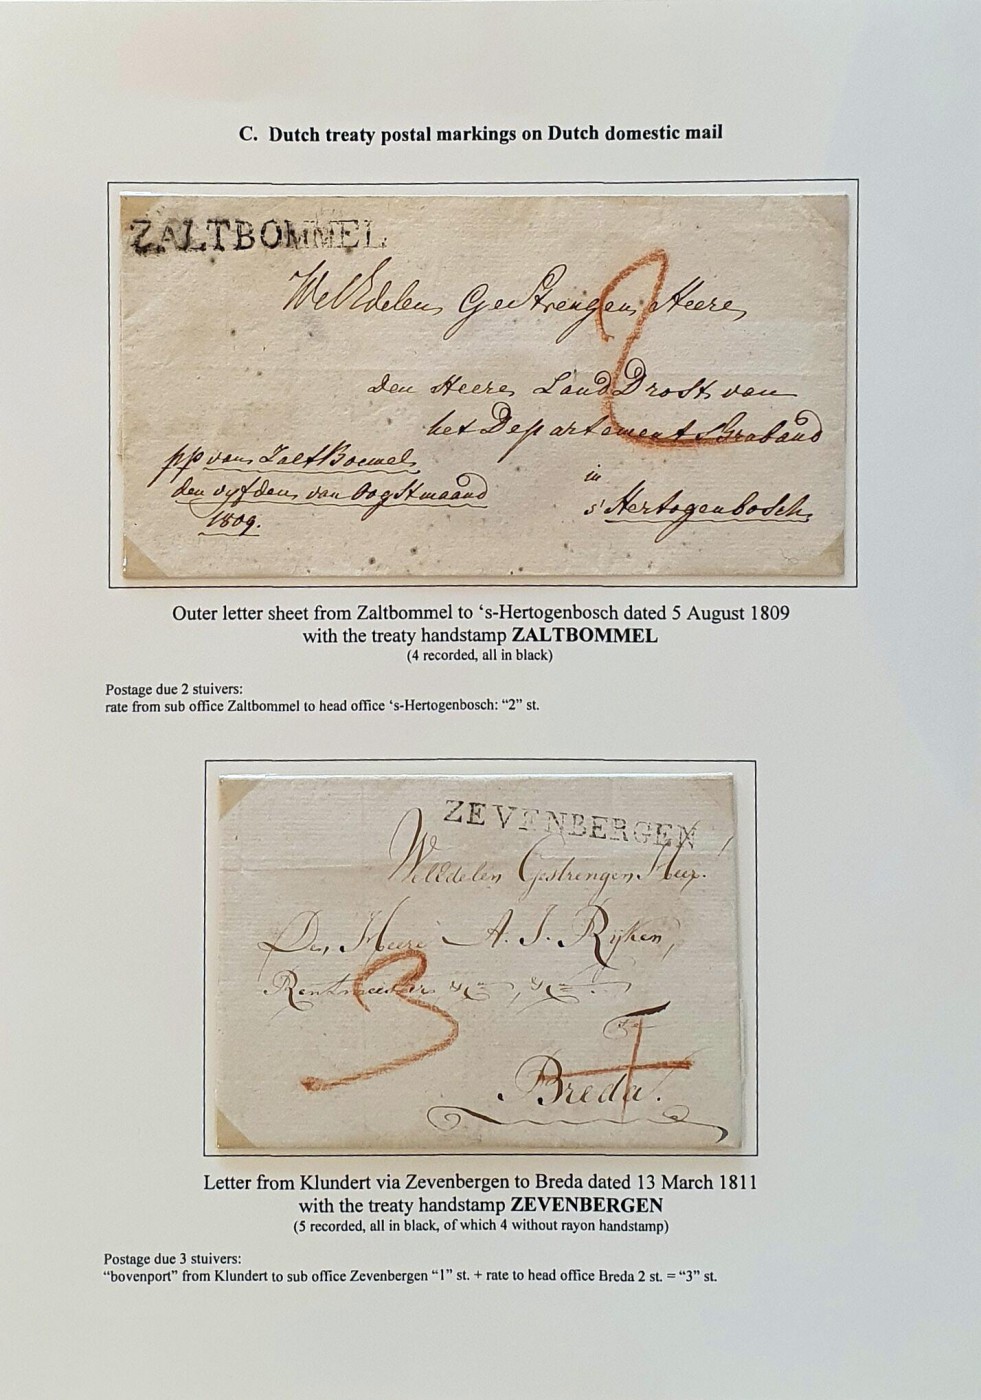 C. Dutch treaty postal markings on Dutch domestic mail
ZALTBOMMEL
WelEdelen GeStrengen Heere
2
den Heere LandDrost van
het Departement Braband
in
s'Hertogenbosch
pp van ZaltBoemel
den vyfden van Oogstmaand
1809.
Outer letter sheet from Zaltbommel to ‘s-Hertogenbosch dated 5 August 1809
with the treaty handstamp ZALTBOMMEL
(4 recorded, all in black)
Postage due 2 stuivers:
rate from sub office Zaltbommel to head office ‘s-Hertogenbosch: “2” st.
ZEVENBERGEN
WelEdelen Gestrengen Heer!
Den Heere A. J. Rijken,
Rentmeester
3
1
Breda.
Letter from Klundert via Zevenbergen to Breda dated 13 March 1811
with the treaty handstamp ZEVENBERGEN
(5 recorded, all in black, of which 4 without rayon handstamp)
Postage due 3 stuivers:
“bovenport” from Klundert to sub office Zevenbergen “1” st. + rate to head office Breda 2 st. = “3” st.